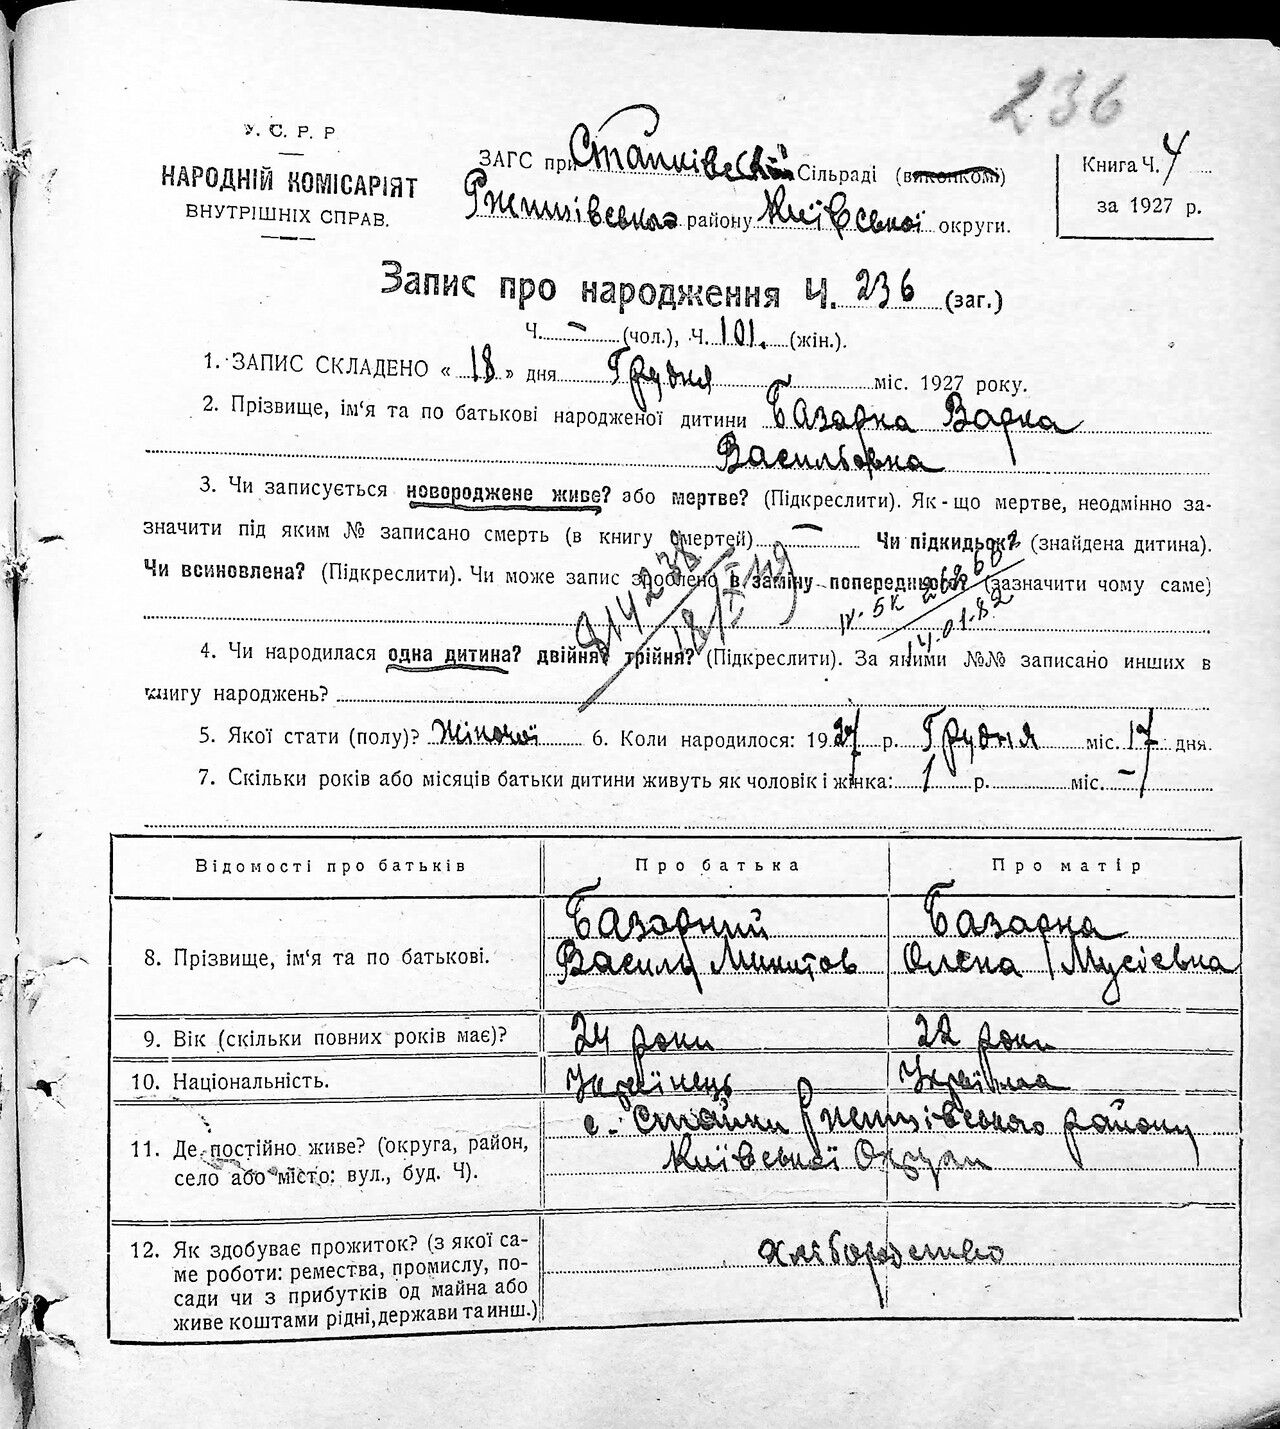 236
У. С. Р. Р
НАРОДНІЙ КОМІСАРІЯТ
ВНУТРІШНІХ СПРАВ.
ЗАГС при Стайківській Сільраді (виконкомі)
Ржищівського району Київської округи.
Книга Ч. 4
за 1927 р.
Запис про народження Ч. 236 (заг.)
Ч. – (чол.), Ч. 101. (жін.).
1. ЗАПИС СКЛАДЕНО « 18 » дня Грудня міс. 1927 року.
2. Прізвище, ім‘я та по батькові народженої дитини Базарна Варка
Васильовна
3. Чи записується новороджене живе? або мертве? (Підкреслити). Як-що мертве, неодмінно за-
значити під яким № записано смерть (в книгу смертей) – Чи підкидьок? (знайдена дитина).
Чи всиновлена? (Підкреслити). Чи може запис зроблено в заміну попереднього? (зазначити чому саме)
14.01.82
4. Чи народилася одна дитина? двійня? трійня? (Підкреслити). За якими №№ записано инших в
книгу народжень?
5. Якої стати (полу)? Жіночої 6. Коли народилося: 1927 р. Грудня міс. 17 дня.
7. Скільки років або місяців батьки дитини живуть як чоловік і жінка: 1 р. міс. –
Відомості про батьків Про батька Про матір
8. Прізвище, ім‘я та по батькові. Базарний Василь Микитов Базарна Олена Мусієвна
9. Вік (скільки повних років має)? 24 роки 22 роки
10. Національність. Українець Українка
11. Де постійно живе? (округа, район, село або місто: вул., буд. Ч). с. Стайки Ржищівського району
Київської Округи
12. Як здобуває прожиток? (з якої са-
ме роботи: ремества, промислу, по-
сади чи з прибутків од майна або
живе коштами рідні, держави та инш.)
хліборобство